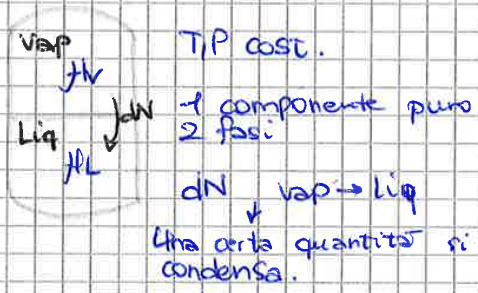 vap
μv
dN
Liq
μL
T,P cost.
1 componente puro
2 fasi
dN vap → Liq
↓
Una certa quantità si
condensa.